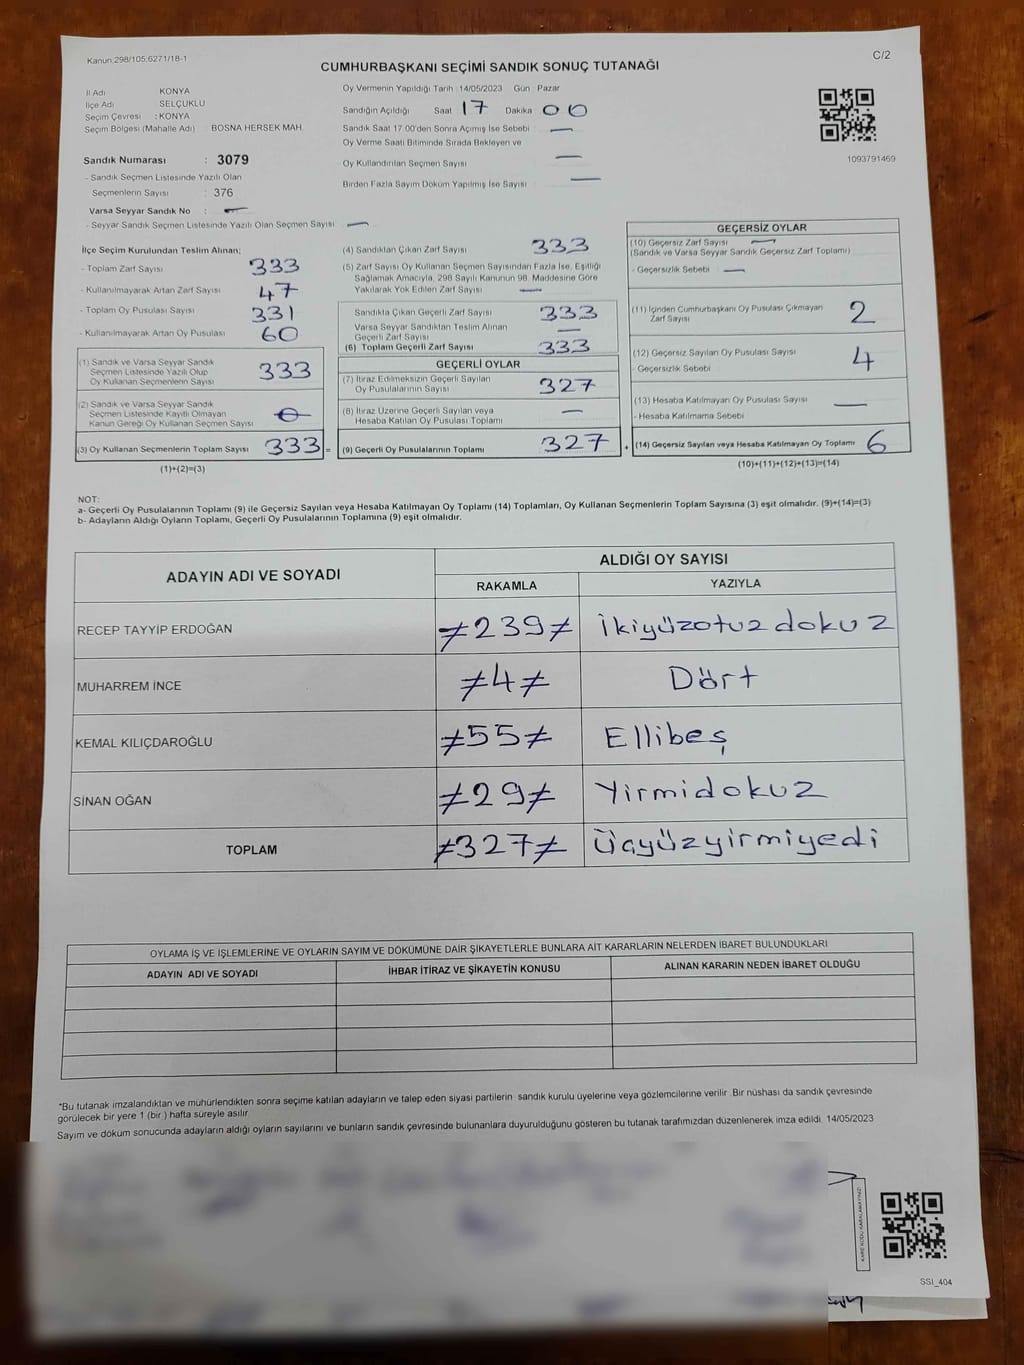 Kanun:298/105;6271/18-1
C/2
CUMHURBAŞKANI SEÇİMİ SANDIK SONUÇ TUTANAĞI
İl Adı : KONYA
İlçe Adı : SELÇUKLU
Seçim Çevresi : KONYA
Seçim Bölgesi (Mahalle Adı) : BOSNA HERSEK MAH.
Oy Vermenin Yapıldığı Tarih :14/05/2023 Gün : Pazar
Sandığın Açıldığı Saat 17 Dakika 00
Sandık Saat 17.00'den Sonra Açımış İse Sebebi : —
Oy Verme Saati Bitiminde Sırada Bekleyen ve
Oy Kullandırılan Seçmen Sayısı —
Birden Fazla Sayım Döküm Yapılmış İse Sayısı : —
1093791469
Sandık Numarası : 3079
- Sandık Seçmen Listesinde Yazılı Olan
Seçmenlerin Sayısı : 376
Varsa Seyyar Sandık No : —
- Seyyar Sandık Seçmen Listesinde Yazılı Olan Seçmen Sayısı : —
İlçe Seçim Kurulundan Teslim Alınan;
- Toplam Zarf Sayısı 333
- Kullanılmayarak Artan Zarf Sayısı 47
- Toplam Oy Pusulası Sayısı 331
- Kullanılmayarak Artan Oy Pusulası 60
(1) Sandık ve Varsa Seyyar Sandık
Seçmen Listesinde Yazılı Olup
Oy Kullanan Seçmenlerin Sayısı 333
(2) Sandık ve Varsa Seyyar Sandık
Seçmen Listesinde Kayıtlı Olmayan
Kanun Gereği Oy Kullanan Seçmen Sayısı 0
(3) Oy Kullanan Seçmenlerin Toplam Sayısı 333 =
(1)+(2)=(3)
(4) Sandıktan Çıkan Zarf Sayısı 333
(5) Zarf Sayısı Oy Kullanan Seçmen Sayısından Fazla İse, Eşitliği
Sağlamak Amacıyla, 298 Sayılı Kanunun 98. Maddesine Göre
Yakılarak Yok Edilen Zarf Sayısı —
Sandıkta Çıkan Geçerli Zarf Sayısı 333
Varsa Seyyar Sandıktan Teslim Alınan
Geçerli Zarf Sayısı —
(6) Toplam Geçerli Zarf Sayısı 333
GEÇERLİ OYLAR
(7) İtiraz Edilmeksizin Geçerli Sayılan
Oy Pusulalarının Sayısı 327
(8) İtiraz Üzerine Geçerli Sayılan veya
Hesaba Katılan Oy Pusulası Toplamı —
(9) Geçerli Oy Pusulalarının Toplamı 327 +
GEÇERSİZ OYLAR
(10) Geçersiz Zarf Sayısı —
(Sandık ve Varsa Seyyar Sandık Geçersiz Zarf Toplamı)
- Geçersizlik Sebebi : —
(11) İçinden Cumhurbaşkanı Oy Pusulası Çıkmayan
Zarf Sayısı 2
(12) Geçersiz Sayılan Oy Pusulası Sayısı
- Geçersizlik Sebebi : 4
(13) Hesaba Katılmayan Oy Pusulası Sayısı —
- Hesaba Katılmama Sebebi
(14) Geçersiz Sayılan veya Hesaba Katılmayan Oy Toplamı 6
(10)+(11)+(12)+(13)=(14)
NOT:
a- Geçerli Oy Pusulalarının Toplamı (9) ile Geçersiz Sayılan veya Hesaba Katılmayan Oy Toplamı (14) Toplamları, Oy Kullanan Seçmenlerin Toplam Sayısına (3) eşit olmalıdır. (9)+(14)=(3)
b- Adayların Aldığı Oyların Toplamı, Geçerli Oy Pusulalarının Toplamına (9) eşit olmalıdır.
ADAYIN ADI VE SOYADI ALDIĞI OY SAYISI
RAKAMLA YAZIYLA
RECEP TAYYİP ERDOĞAN ≠239≠ İkiyüzotuz dokuz
MUHARREM İNCE ≠4≠ Dört
KEMAL KILIÇDAROĞLU ≠55≠ Ellibeş
SİNAN OĞAN ≠29≠ Yirmidokuz
TOPLAM ≠327≠ Üçyüzyirmiyedi
OYLAMA İŞ VE İŞLEMLERİNE VE OYLARIN SAYIM VE DÖKÜMÜNE DAİR ŞİKAYETLERLE BUNLARA AİT KARARLARIN NELERDEN İBARET BULUNDUKLARI
ADAYIN ADI VE SOYADI İHBAR İTİRAZ VE ŞİKAYETİN KONUSU ALINAN KARARIN NEDEN İBARET OLDUĞU
*Bu tutanak imzalandıktan ve mühürlendikten sonra seçime katılan adayların ve talep eden siyasi partilerin sandık kurulu üyelerine veya gözlemcilerine verilir. Bir nüshası da sandık çevresinde
görülecek bir yere 1 (bir ) hafta süreyle asılır.
Sayım ve döküm sonucunda adayların aldığı oyların sayılarını ve bunların sandık çevresinde bulunanlara duyurulduğunu gösteren bu tutanak tarafımızdan düzenlenerek imza edildi. 14/05/2023
KARE KODU KARALAMAYINIZ!
SSI_404